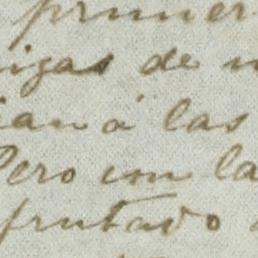 primer
igas de
ian á las
Pero con la
frutado